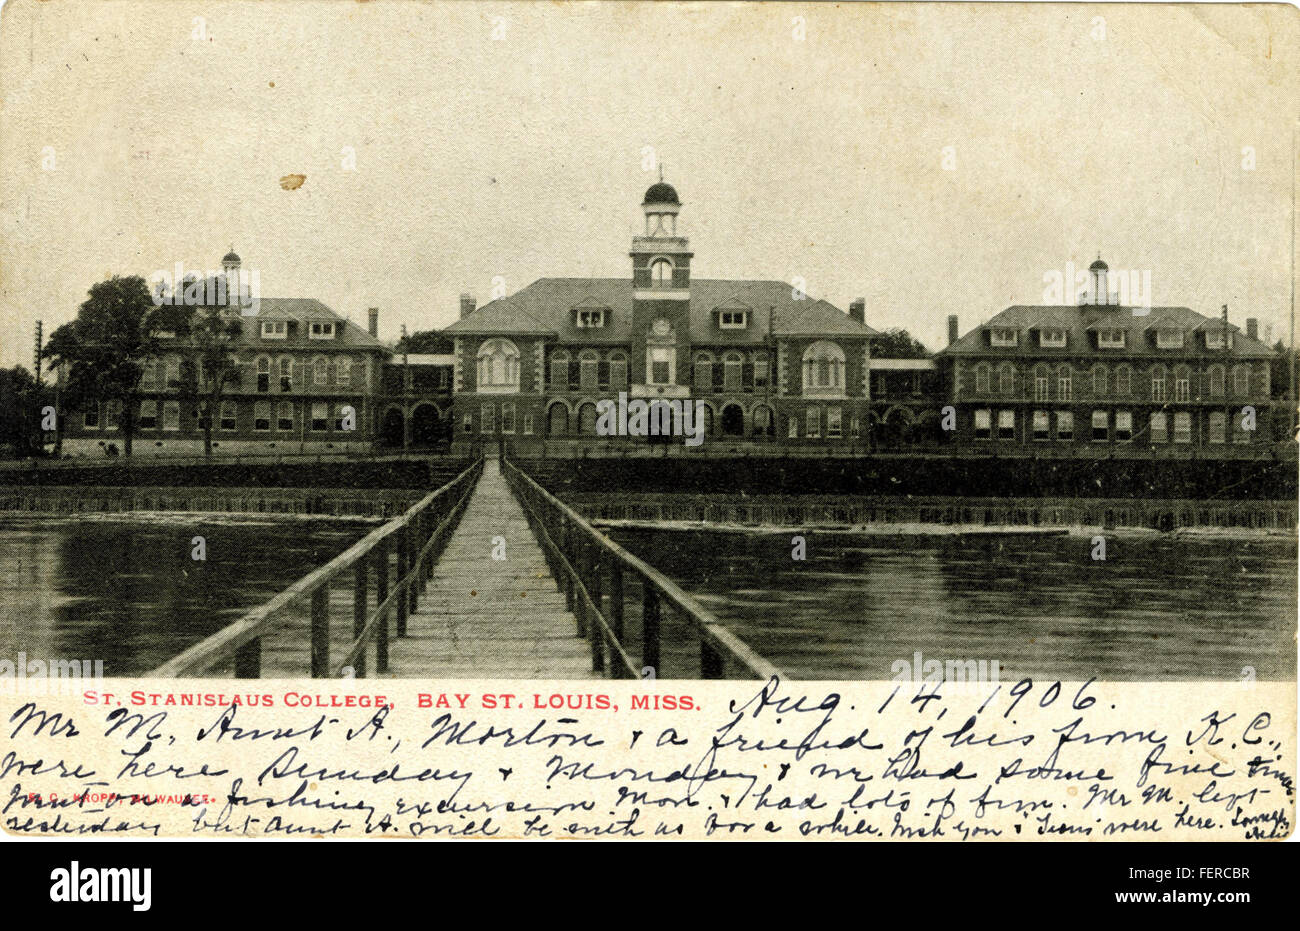 ST. STANISLAUS COLLEGE, BAY ST. LOUIS, MISS. Aug. 14, 1906.
Mr M, Aunt A., Morton & a friend of his from K.C.,
were here Sunday & Monday & we had some fine times.
E. C. KROPP, MILWAUKEE.
Went on a fishing excursion Mon. & had lots of fun. Mr M. left
yesterday but Aunt A. will be with us for a while. Wish you & were here.
alamy
Image ID: FERCBR
www.alamy.com